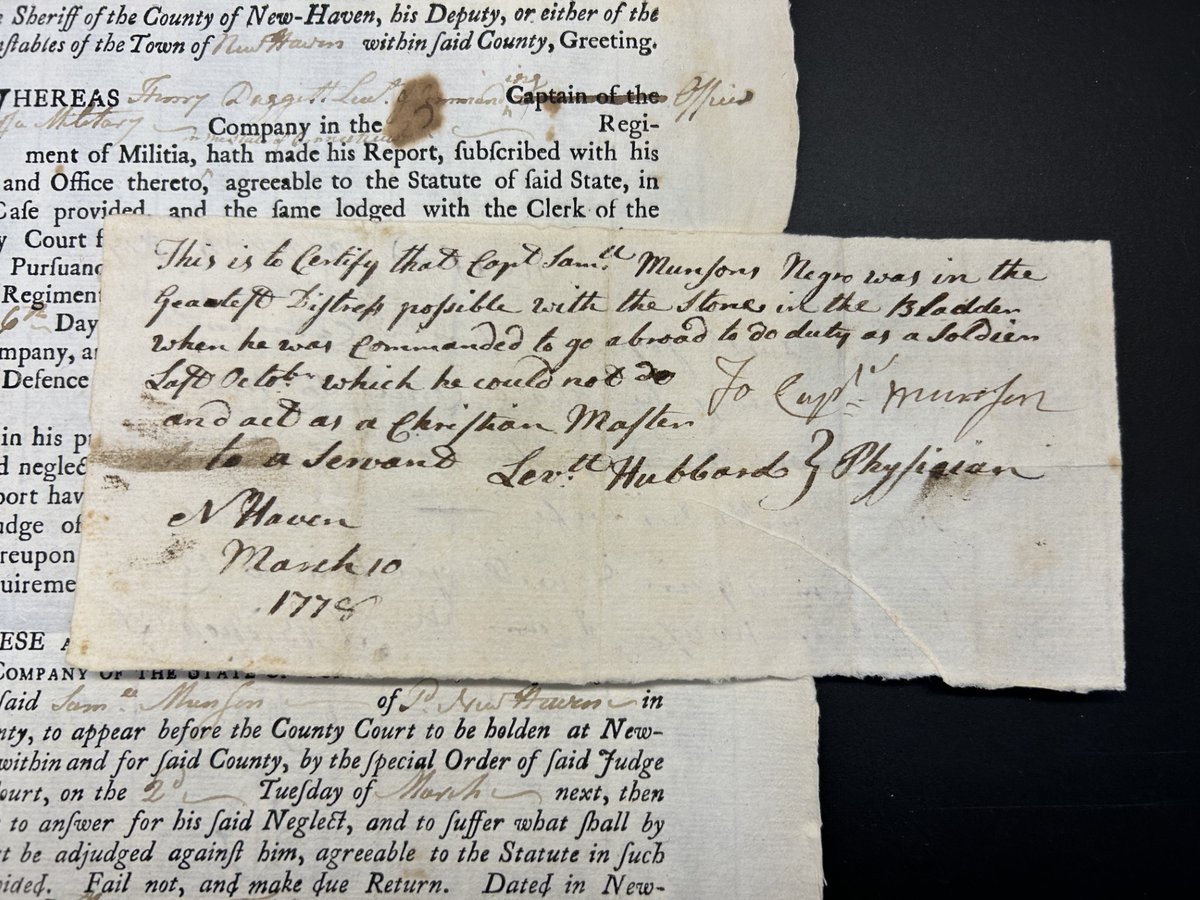 Sheriff of the County of New-Haven, his Deputy, or either of the
nſtables of the Town of New Haven within ſaid County, Greeting.
WHEREAS Henry Daggett Lieut. Captain of the Officer
a Military Company in the Regi-
ment of Militia, hath made his Report, ſubſcribed with his
and Office thereto, agreeable to the Statute of ſaid State, in
Caſe provided, and the ſame lodged with the Clerk of the
y Court f
Purſuanc
Regiment
6th Day
mpany, a
Defence
in his p
d neglec
port hav
udge of
reupon
uireme
This is to Certify that Capt Samll Munsons Negro was in the
Greateſt Diſtreſs poſsible with the Stone in the Bladder
when he was Commanded to go abroad to do duty as a Soldier
Laſt Octobr which he could not do
and act as a Chriſtian Maſter
to a Servant
To Capt Munſon
Levtt Hubbard } Phyſician
N Haven
March 10
1778
ESE A
COMPANY OF THE STATE OF
ſaid Samll Munſon of Sd New Haven in
nty, to appear before the County Court to be holden at New-
within and for ſaid County, by the ſpecial Order of ſaid Judge
ourt, on the 2d Tueſday of March next, then
to anſwer for his ſaid Neglect, and to ſuffer what ſhall by
be adjudged againſt him, agreeable to the Statute in ſuch
vided. Fail not, and make due Return. Dated in New-